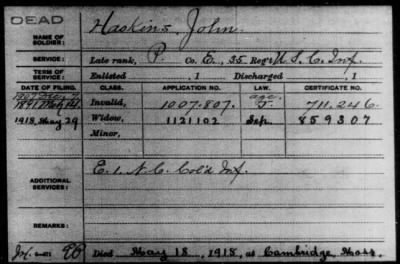 DEAD
NAME OF SOLDIER: Haskins, John.
SERVICE: Late rank, P. Co. E, 35 Reg't U. S. C. Inf.
TERM OF SERVICE: Enlisted , 1 Discharged , 1
DATE OF FILING. CLASS. APPLICATION NO. LAW. CERTIFICATE NO.
1891 Invalid, 1007.807. age J. 711.246.
1918, May 29 Widow, 1121102 Sep. 859307
Minor,
ADDITIONAL SERVICES: E. 1. N. C. Col'd Inf.
REMARKS:
Died May 18, 1918, at Cambridge, Mass.